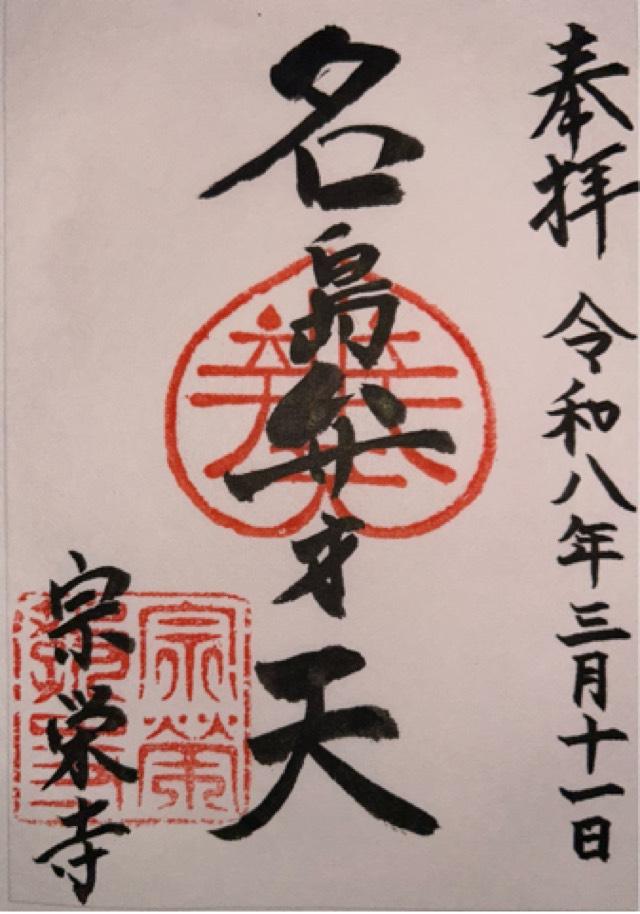 奉拝 令和八年三月十一日
名島弁才天
宗栄寺
宗榮